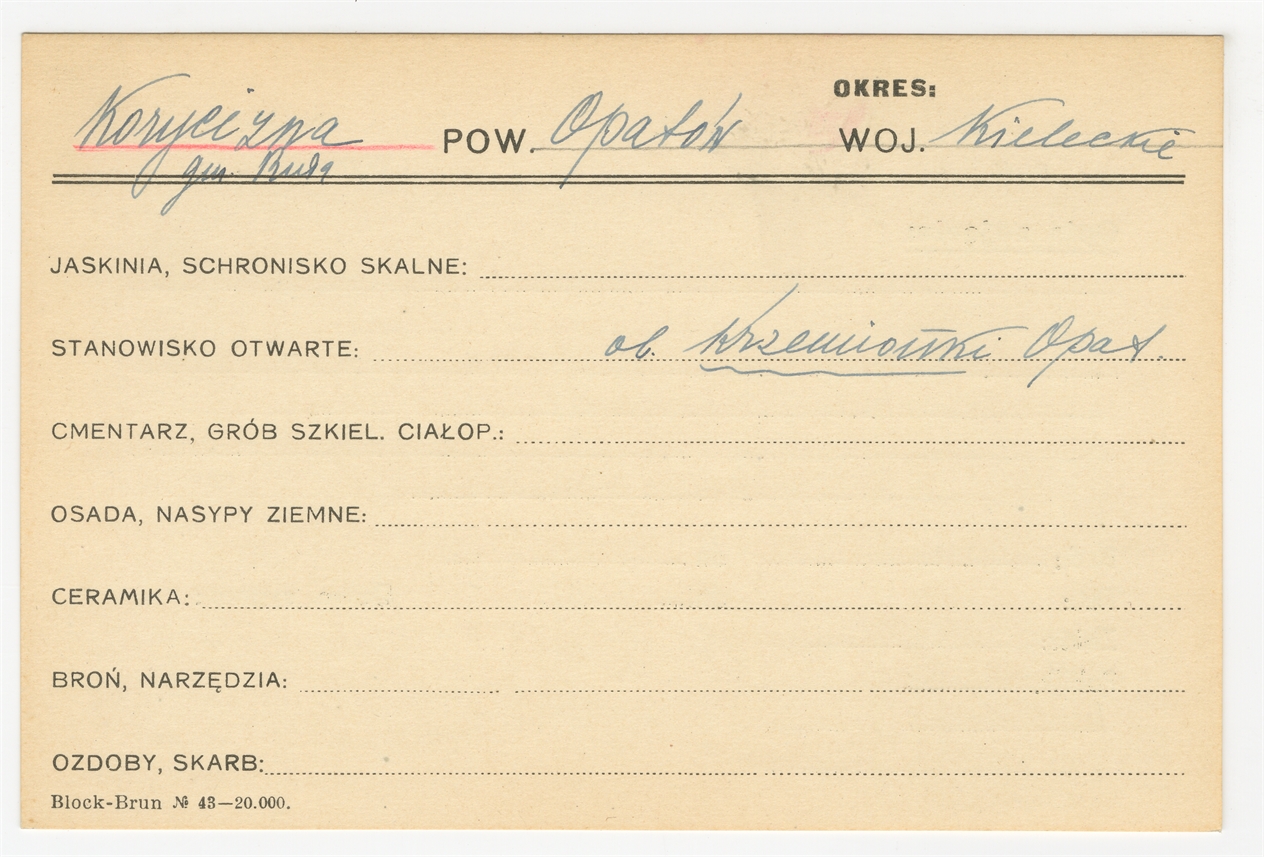 OKRES:
Korycizna POW. Opatów WOJ. Kieleckie
gm. Ruda
JASKINIA, SCHRONISKO SKALNE:
STANOWISKO OTWARTE: ob. Krzemionki Opat.
CMENTARZ, GRÓB SZKIEL. CIAŁOP.:
OSADA, NASYPY ZIEMNE:
CERAMIKA:
BROŃ, NARZĘDZIA:
OZDOBY, SKARB:
Block-Brun № 43—20.000.